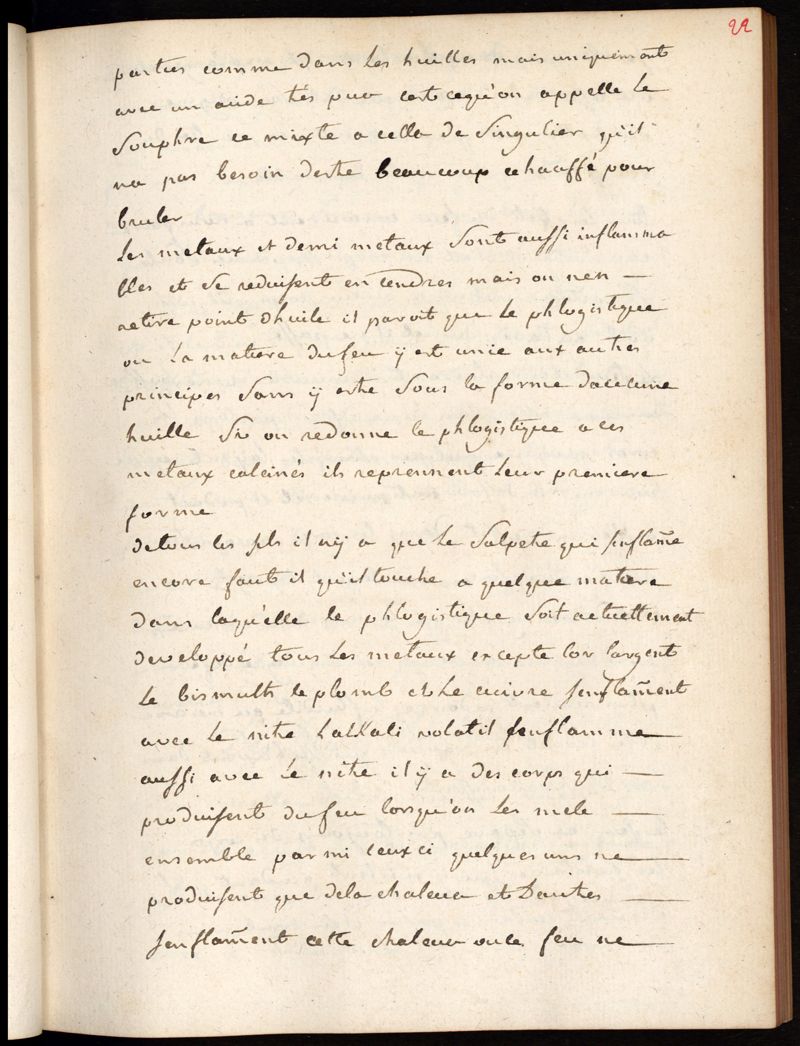 22
parties comme dans les huilles mais uniquement
avec un acide tres pur cest cequ'on appelle le
Souphre ce mixte a cella de Singulier qu'il
na pas besoin destre beaucoup echauffé pour
bruler
Les metaux et demi metaux Sont aussi inflamma
bles et Se reduisent en Cendres mais on nen —
retire point dhuile il paroit que le phlogistique
ou La matiere du feu ÿ est unie aux autres
principes Sans ÿ estre Sous la forme daucune
huille Si on redonne le phlogistique a ces
metaux calcinés ils reprennent Leur premiere
forme
de tous les sels il nÿ a que Le Salpetre qui senflam̄e
encore faut il qu'il touche a quelque matiere
dans laqu'elle le phlogistique Soit actuellement
developpé tous Les metaux excepte lor largent
Le bismuth le plomb et Le cuivre senflam̄ent
avec Le nitre Lalkali volatil senflamme —
aussi avec Le nitre il ÿ a des corps qui —
produisent du feu lorsqu'on Les mele —
ensemble parmi ceux ci quelques uns ne —
produisent que dela chaleur et Dautres —
senflam̄ent cette chaleur ou ce feu ne —